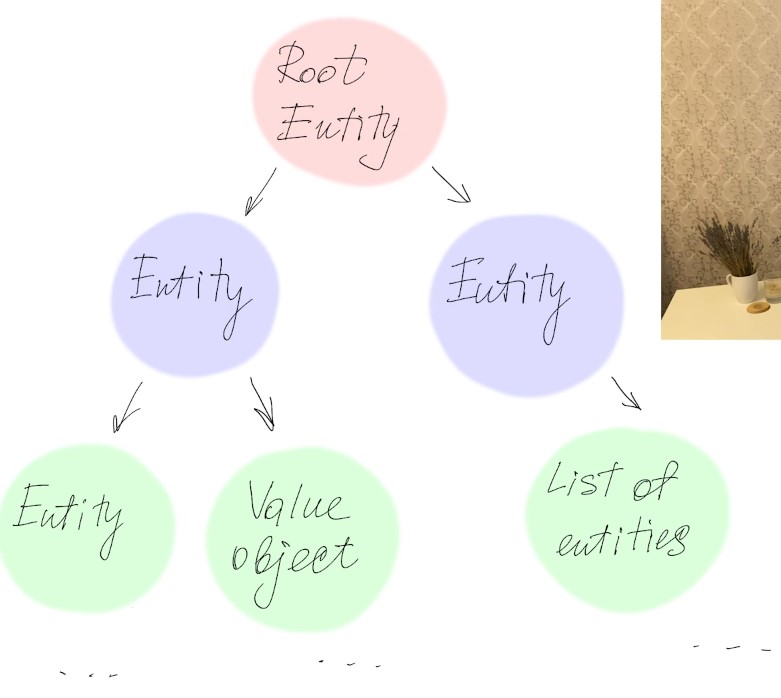 Root
Entity
Entity
Entity
Entity
Value
object
List of
entities